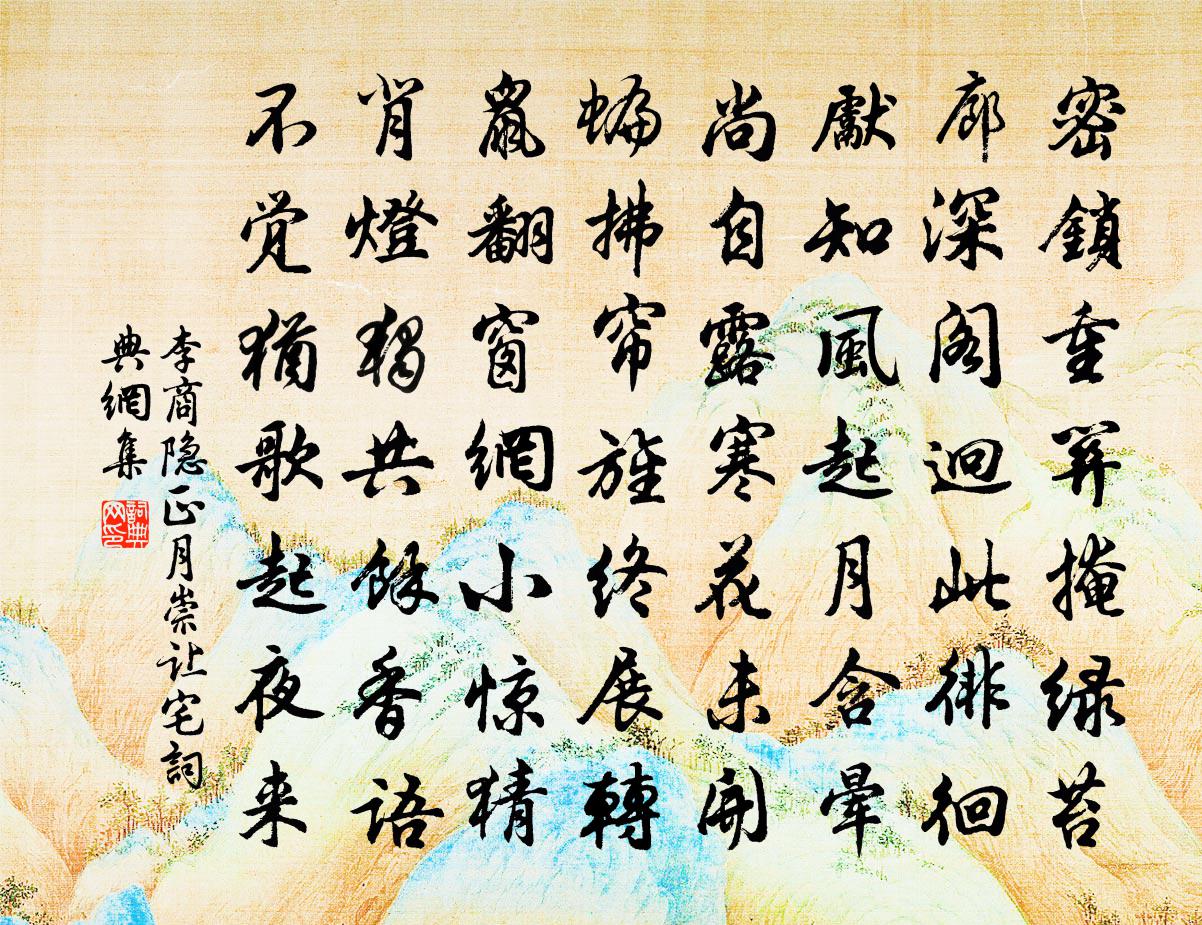 密鎖重関掩绿苔
廊深阁迥此徘徊
獻知風起月含暈
尚自露寒花未開
蝙拂帘旌终展轉
鼠翻窗網小惊猜
背燈獨共餘香语
不觉猶歌起夜来
李商隐正月崇让宅詞
典網集
詞典
网印